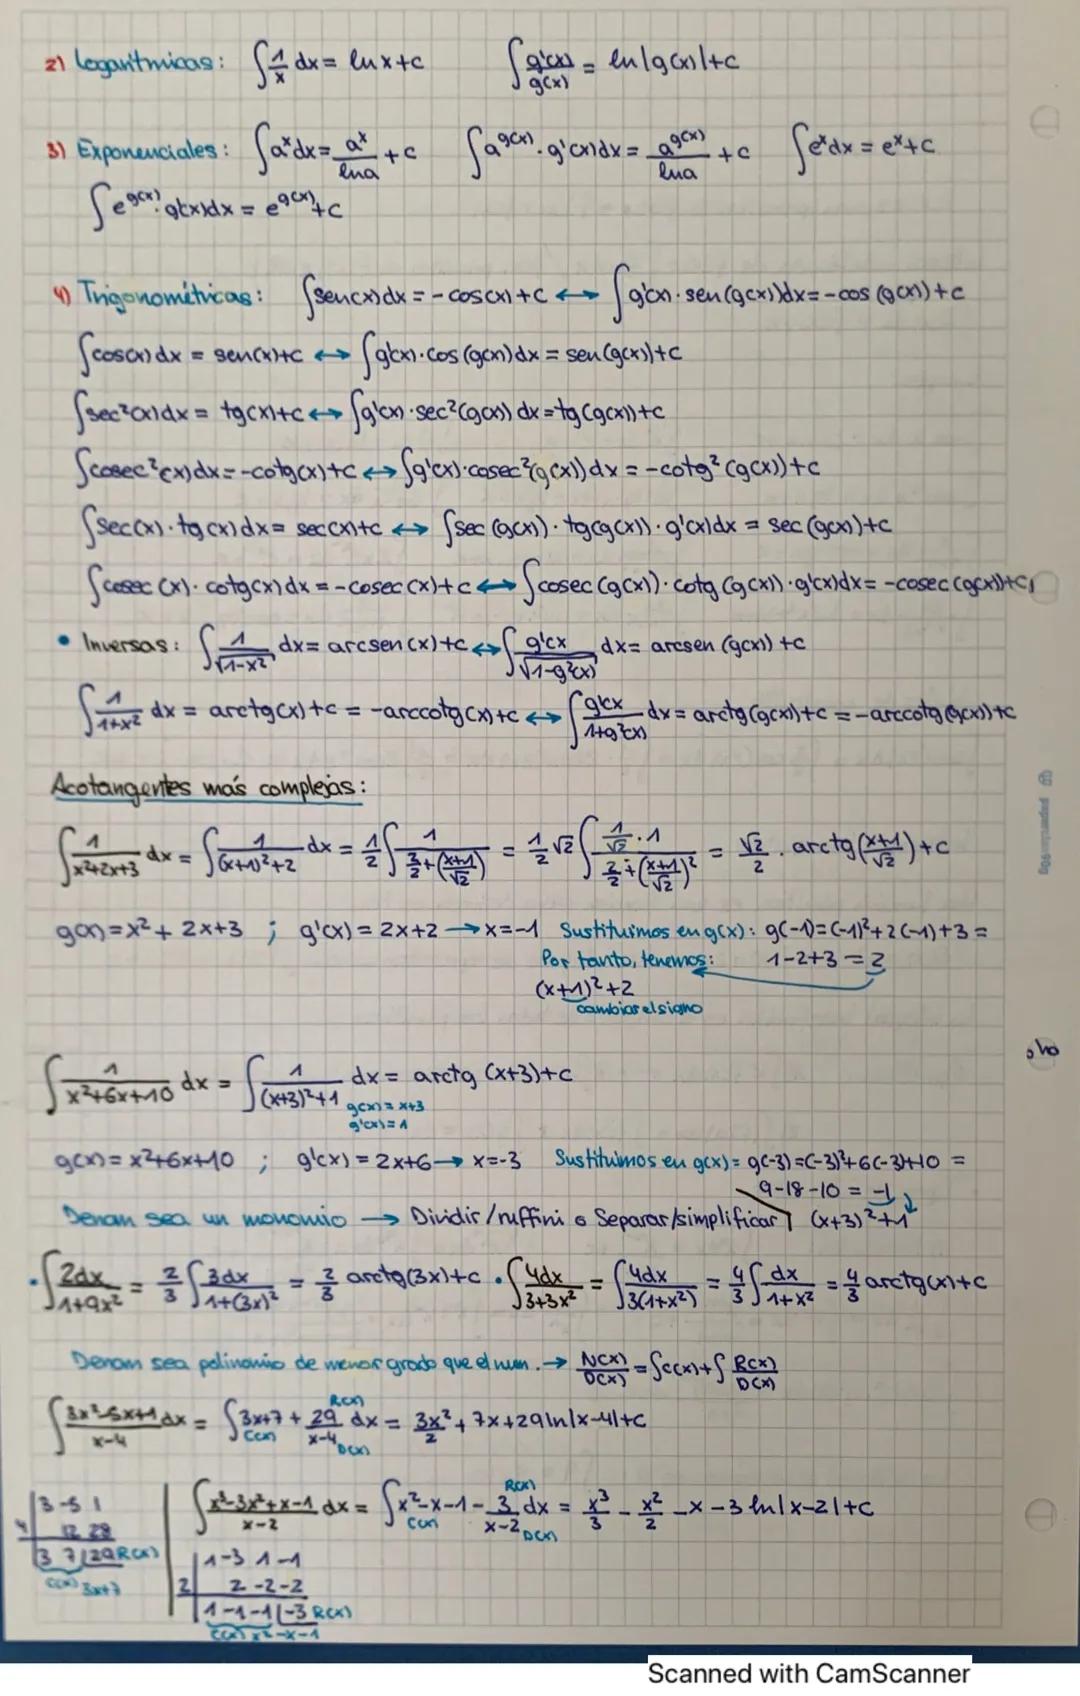 2) Logarítmicas: ∫ 1/x dx = ln x + c    ∫ g'(x)/g(x) = ln |g(x)| + c
3) Exponenciales: ∫ aˣ dx = aˣ/lna + c    ∫ a^g(x) · g'(x)dx = a^g(x)/lna + c    ∫ eˣ dx = eˣ + c
∫ e^g(x) · g'(x)dx = e^g(x) + c
4) Trigonométricas: ∫ sen(x) dx = - cos(x) + c ↔ ∫ g'(x) · sen(g(x))dx = - cos (g(x)) + c
∫ cos(x) dx = sen(x)+c ↔ ∫ g'(x) · cos (g(x)) dx = sen (g(x))+c
∫ sec²(x)dx = tg(x)+c ↔ ∫ g'(x) · sec²(g(x)) dx = tg(g(x))+c
∫ cosec²(x)dx = -cotg(x)+c ↔ ∫ g'(x) · cosec²(g(x)) dx = -cotg² (g(x))+c
∫ sec(x) · tg(x) dx = sec(x)+c ↔ ∫ sec (g(x)) · tg(g(x)) · g'(x)dx = sec (g(x))+c
∫ cosec (x) · cotg(x) dx = -cosec (x)+c ↔ ∫ cosec (g(x)) · cotg (g(x)) · g'(x)dx = -cosec (g(x))+c
• Inversas: ∫ 1/√(1-x²) dx = arcsen (x)+c ↔ ∫ g'(x/√(1-g²(x)) dx = arcsen (g(x)) +c
∫ 1/(1+x²) dx = arctg(x)+c = -arccotg(x)+c ↔ ∫ g'(x/(1+g²(x)) dx = arctg(g(x))+c = -arccotg(g(x))+c
Acotangentes más complejas:
∫ 1/(x²+2x+3) dx = ∫ 1/((x+1)²+2) dx = 1/2 ∫ 1/(2/2+((x+1)/√2)) = 1/2 √2 ∫ (1/√2 · 1)/(2/2+((x+1)/√2)²) = √2/2 · arctg((x+1)/√2)+c
g(x)=x²+2x+3 ; g'(x) = 2x+2 → x=-1 Sustituimos en g(x): g(-1)=(-1)²+2(-1)+3 =
Por tanto, tenemos: 1-2+3 = 2
(x+1)²+2
cambiar el signo
∫ 1/(x²+6x+10) dx = ∫ 1/((x+3)²+1) dx = arctg (x+3)+c
g(x) = x+3
g'(x) = 1
g(x) = x²+6x+10 ; g'(x) = 2x+6 → x=-3 Sustituimos en g(x) = g(-3) =(-3)²+6(-3)+10 =
9-18-10 = -1
Denom sea un monomio → Dividir/ruffini o Separar/simplificar (x+3)²+1
• ∫ 2dx/(1+9x²) = 2/3 ∫ 3dx/(1+(3x)²) = 2/3 arctg(3x)+c • ∫ 4dx/(3+3x²) = ∫ 4dx/(3(1+x²)) = 4/3 ∫ dx/(1+x²) = 4/3 arctg(x)+c
Denom sea polinomio de menor grado que el num. → N(x)/D(x) = ∫C(x)+∫ R(x)/D(x)
R(x)
∫ (3x²-5x+1)/(x-4) dx = ∫ 3x+7 + 29/(x-4) dx = 3x²/2 + 7x+29 ln|x-4|+c
C(x) D(x)
R(x)
∫ (x³-3x²+x-1)/(x-2) dx = ∫ x²-x-1 - 3/(x-2) dx = x³/3 - x²/2 - x - 3 ln|x-2|+c
C(x) D(x)
3 -5 1
4 12 28
3 7 |29 R(x)
C(x) 3x+7
1 -3 1 -1
2 2 -2 -2
1 -1 -1 |-3 R(x)
C(x) x²-x-1
Scanned with CamScanner